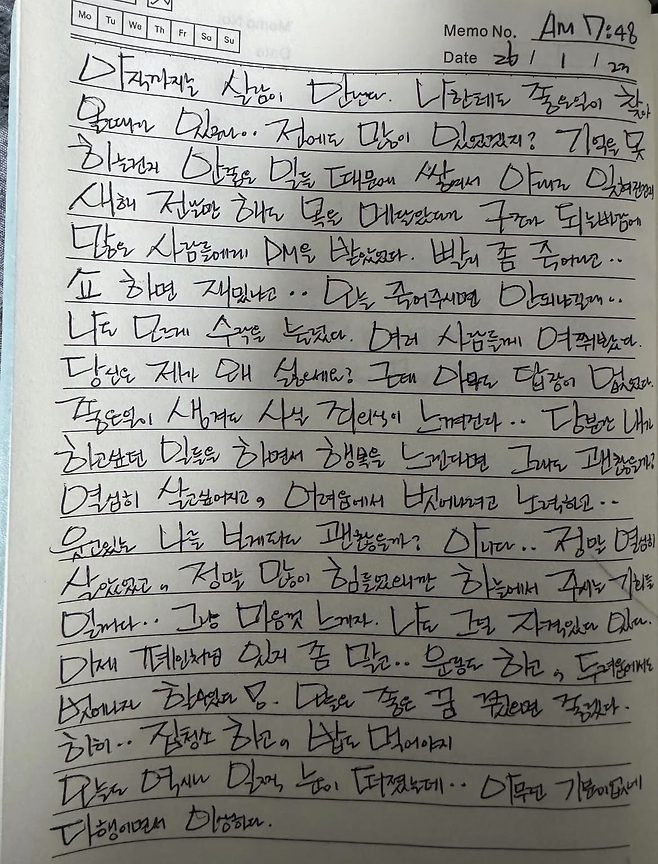 Mo Tu We Th Fr Sa Su
Memo No. AM 7:48
Date 26 / 1 / 23
아직까지는 실감이 안난다. 나한테도 좋은일이 찾아
올때가 있구나.. 전에도 많이 있었겠지? 기억을 못
하는건지 안좋은 일들 때문에 쌓여서 아예 잊혀진건지
새해 전날만 해도 목을 메달았다가 구조가 되는바람에
많은 사람들에게 DM을 받았었다. 빨리 좀 죽어라고..
쇼 하면 재밌냐고.. 오늘 죽어주시면 안되냐길래..
나도 모르게 수락을 눌렀다. 여러 사람들께 여쭤봤다.
당신은 제가 왜 싫으세요? 근데 아무도 답장이 없었다.
좋은일이 생겨도 사실 죄의식이 느껴진다.. 당분간 내가
하고싶던 일들을 하면서 행복을 느낀다면 그래도 괜찮을까?
열심히 살고싶어지고, 어려움에서 벗어나려고 노력하고..
웃고있는 나를 보게돼도 괜찮을까? 아니다.. 정말 열심히
살았었고, 정말 많이 힘들었으니깐 하늘에서 주시는 기회를
일꺼다.. 그냥 마음껏 느끼자. 나도 그럴 자격있다 있다.
이제 폐인처럼 있지 좀 말고.. 운동도 하고, 두려움에서도
벗어나자 할수있다 잉. 오늘은 좋은 꿈 꿨으면 좋겠다.
히히.. 집청소 하고, 밥도 먹어야지
오늘도 역시나 일찍 눈이 떠졌는데.. 아무런 기분이없기에
다행이면서 이상하다.